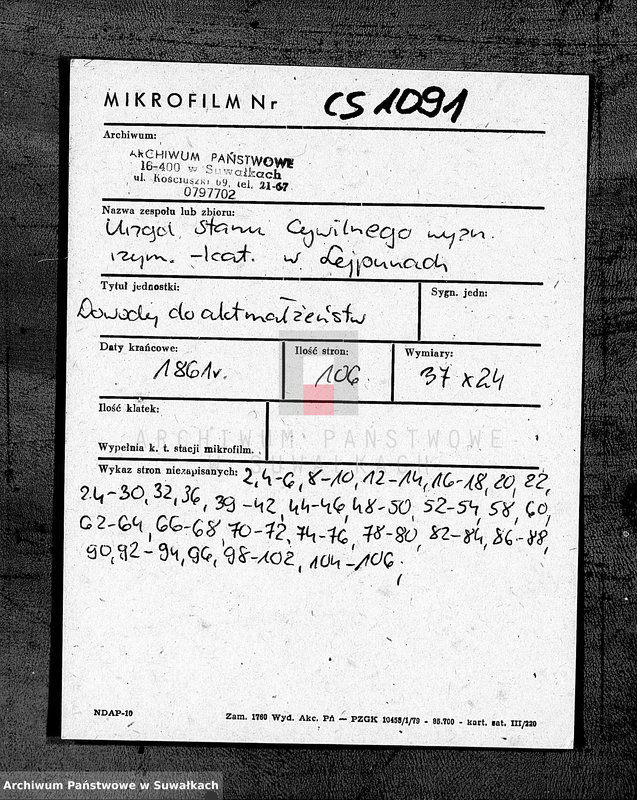 MIKROFILM Nr CS 1091
Archiwum:
ARCHIWUM PAŃSTWOWE
16-400 w Suwałkach
ul. Kościuszki 69, tel. 21-67
0797702
Nazwa zespołu lub zbioru:
Urząd Stanu Cywilnego wyzn.
rzym. -kat. w Lejpunach
Tytuł jednostki:
Sygn. jedn:
Dowody do akt małżeństw
Daty krańcowe:
Ilość stron:
Wymiary:
1861r.
106
37 x 24
Ilość klatek:
ARCHIWUM PAŃSTWOWE
W SUWAŁKACH
Wypełnia k. t. stacji mikrofilm.
Wykaz stron niezapisanych: 2, 4-6, 8-10, 12-14, 16-18, 20, 22,
24-30, 32, 36, 39-42, 44-46, 48-50, 52-54, 58, 60,
62-64, 66-68, 70-72, 74-76, 78-80, 82-84, 86-88,
90, 92-94, 96, 98-102, 104-106;
NDAP-10
Zam. 1760 Wyd. Akc. Pń — PZGK 10458/1/79 - 85.700 - kart. sat. III/220
Archiwum Państwowe w Suwałkach